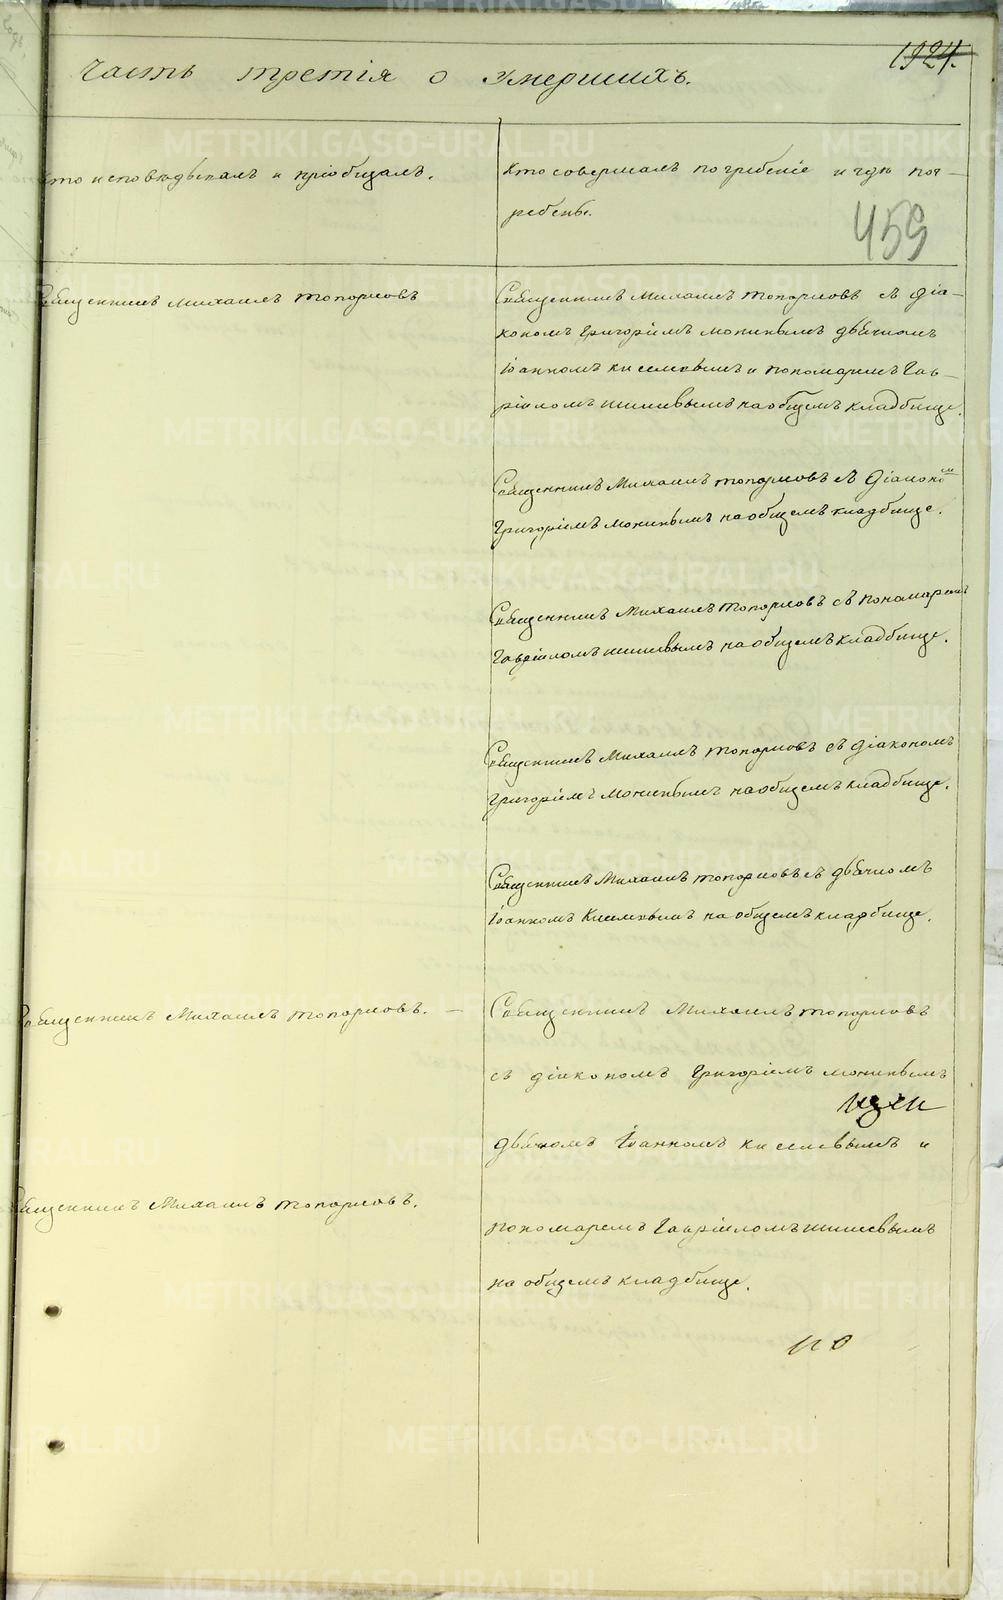 1924.
Часть третія о умершихъ.
Кто исповѣдывалъ и пріобщалъ.
Кто совершалъ погребеніе и гдѣ пог-
ребены.
459
Священникъ Михаилъ Топорковъ
Священникъ Михаилъ Топорковъ съ діа-
кономъ Григоріемъ дьячкомъ
Іоанномъ Киселевымъ и пономаремъ Гав-
ріиломъ на общемъ кладбище.
Священникъ Михаилъ Топорковъ съ Діакономъ
Григоріемъ на общемъ кладбище.
Священникъ Михаилъ Топорковъ съ пономаремъ
Гавріиломъ на общемъ кладбище.
Священникъ Михаилъ Топорковъ съ діакономъ
Григоріемъ на общемъ кладбище.
Священникъ Михаилъ Топорковъ съ дьячкомъ
Іоанномъ Киселевымъ на общемъ кладбище.
Священникъ Михаилъ Топорковъ.
Священникъ Михаилъ Топорковъ
съ діакономъ Григоріемъ
дьячкомъ Іоанномъ Киселевымъ и
Священникъ Михаилъ Топорковъ.
пономаремъ Гавріиломъ
на общемъ кладбище.
METRIKI.GASO-URAL.RU